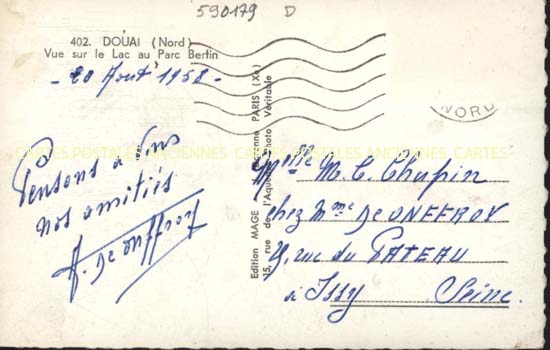 590179 D
402. DOUAI (Nord)
Vue sur le Lac au Parc Bertin
- 20 Août 1958 -
Pensons à Vous
nos amitiés
A. De Onffroy
Edition MAGE PARIS (Xe)
15, rue de l'Aqueduc Photo Véritable
NORD
CARTES POSTALES ANCIENNES CARTES POSTALES ANCIENNES CARTES
Melle M. C. Chapin
chez Mme De ONFFROY
rue du PATEAU
à Issy Seine.